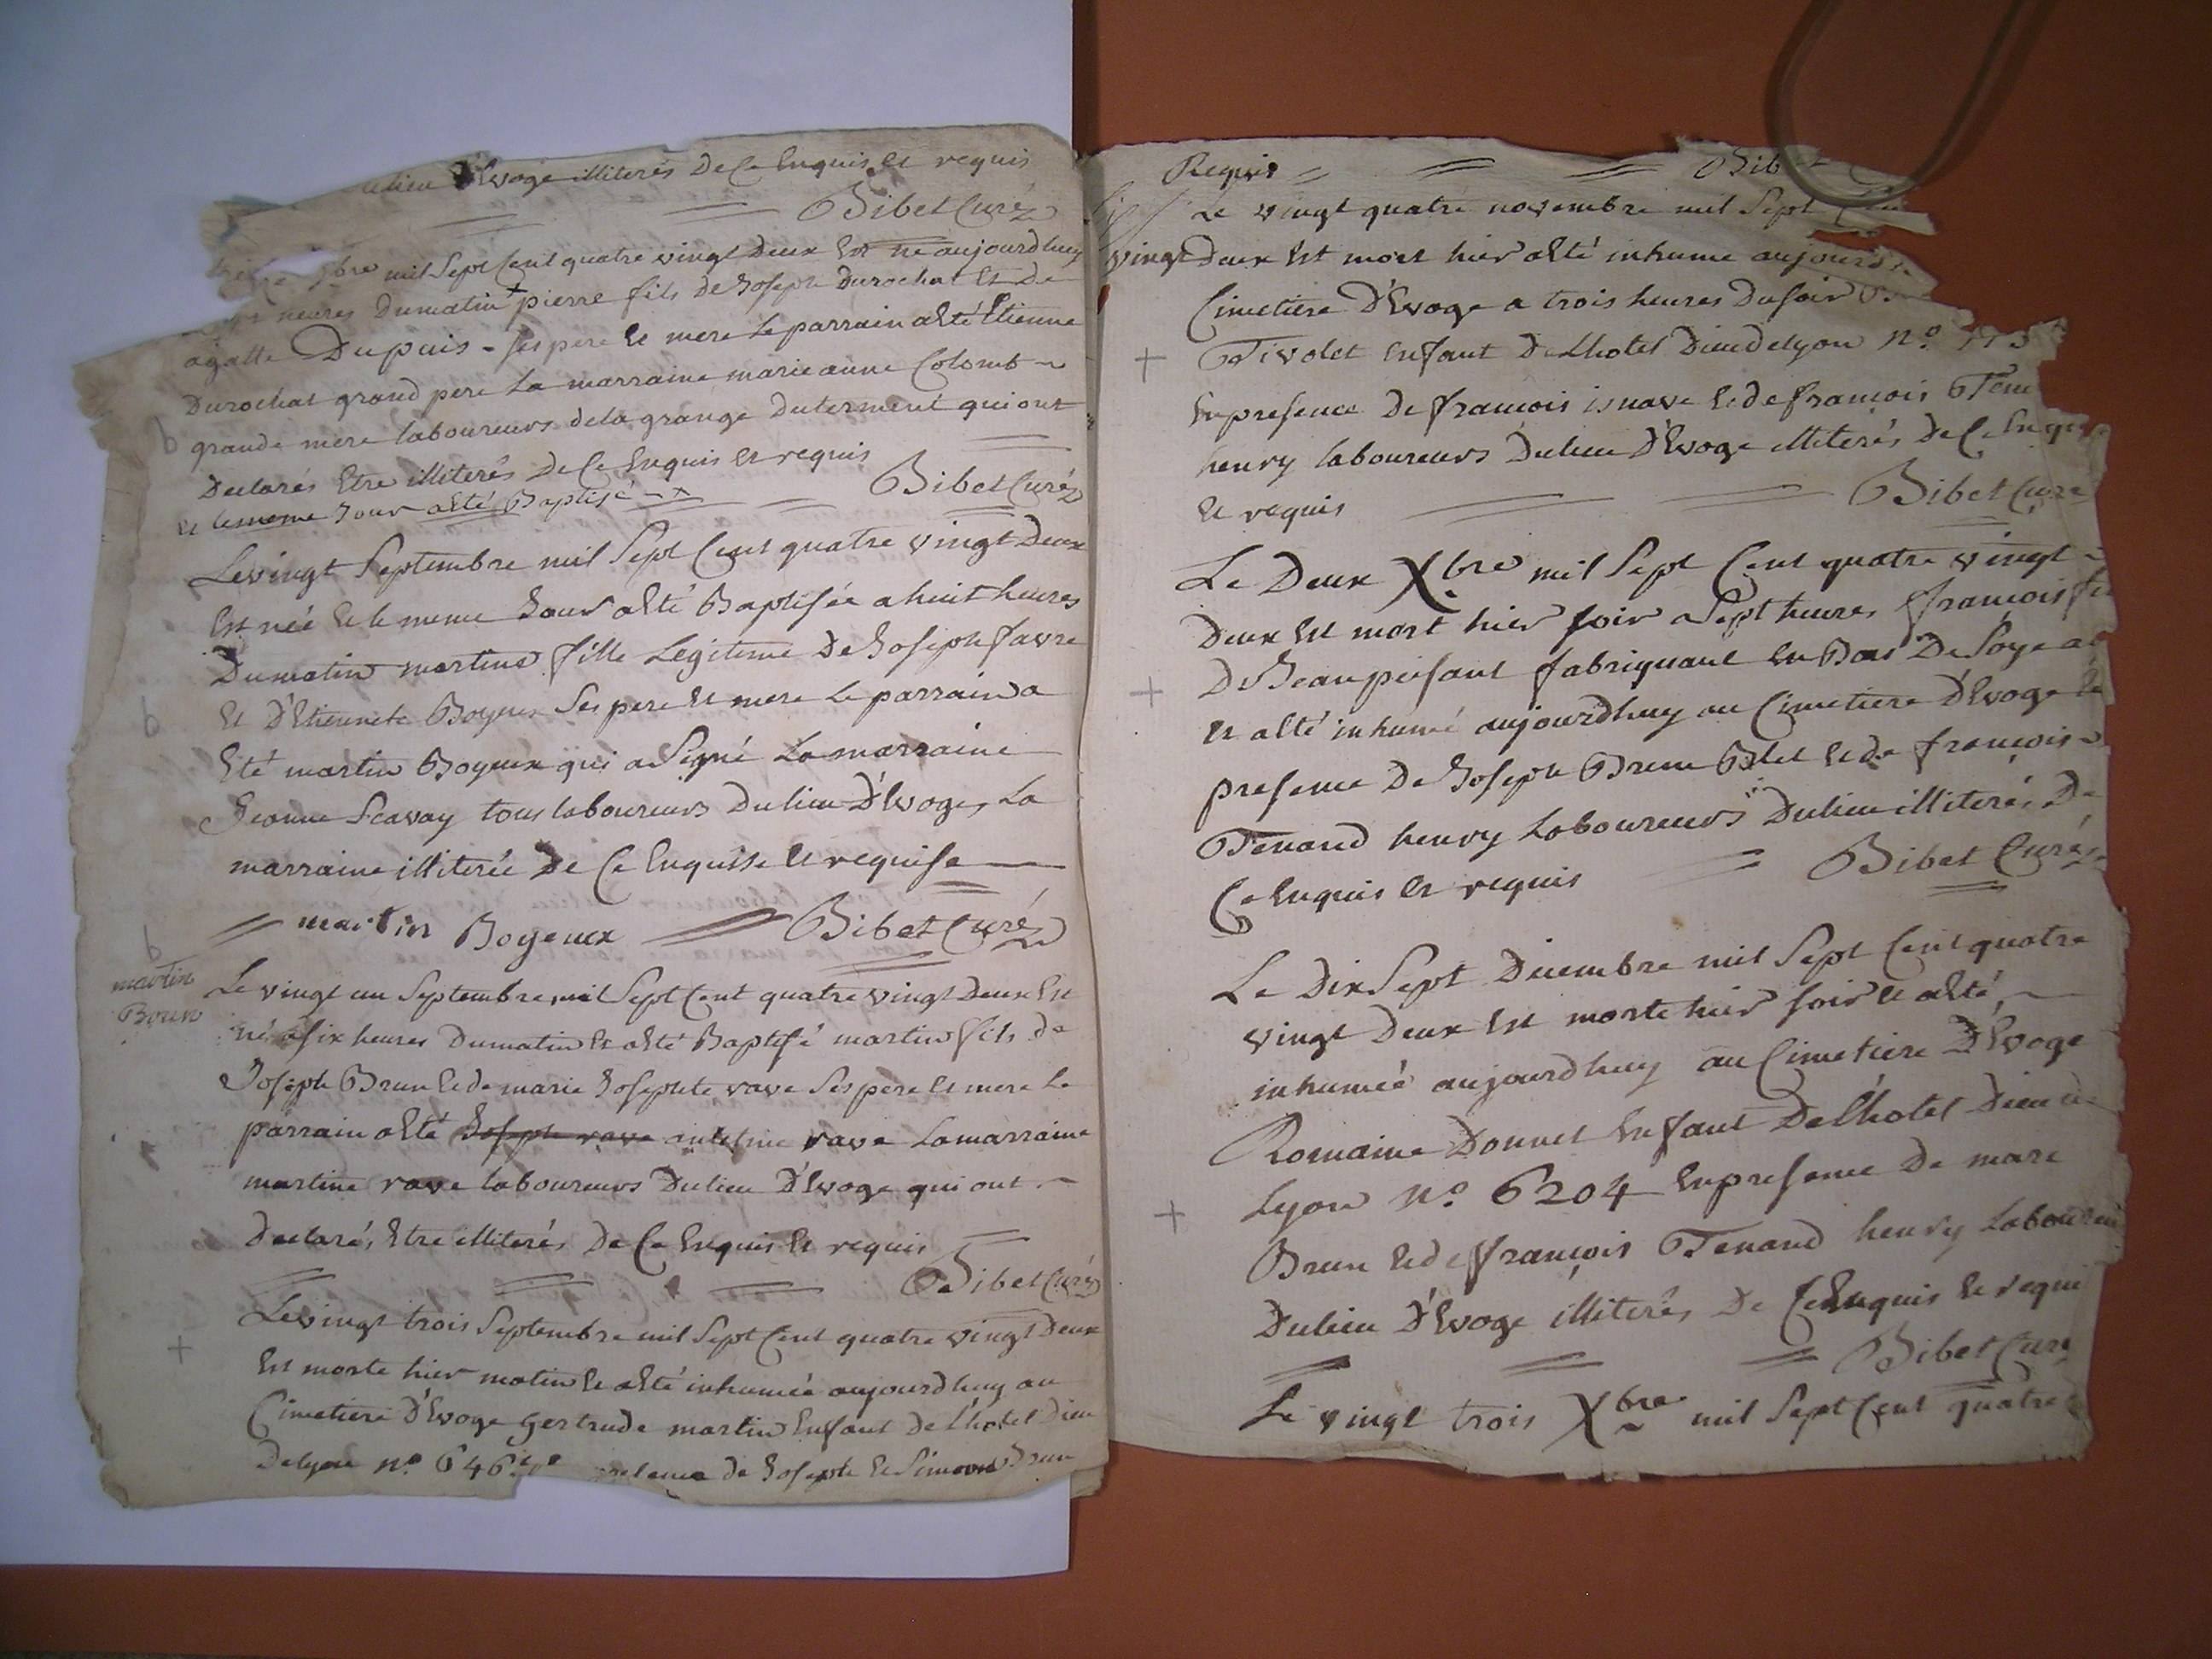 Dulieu D'Evoge illiterés De Ce Enquis et requis
Bibet Curé
9bre mil Sept Cent quatre vingt Deux Est né aujourdhuy
heures Dumatin pierre fils de Joseph Durochat Et De
agatte Dupuis - ses pere Et mere Le parrain a Eté Etienne
Durochat grand pere La marraine marie anne Colomb
b grande mere laboureurs dela grange Duterment qui ont
Declarés Etre illiterés De Ce Enquis Et requis
Bibet Curé
Et lememe Jour a Eté Baptisé
Levingt Septembre mil Sept Cent quatre vingt Deux
Est née Et le meme Jour a Eté Baptisée a huit heures
Dumatin martine fille Legitime De Joseph favre
b Et D'Etiennete Boyeux Ses pere Et mere Le parrain a
Eté martin Boyeux qui a Signé La marraine
Jeanne Scavay tous laboureurs Dulieu D'Evoge, La
marraine illiterée De Ce Enquisse Et requise
martin Boyeux Bibet Curé
b
martin
Brun
Le vingt un Septembre mil Sept Cent quatre vingt Deux Est
né a six heures Dumatin Et a Eté Baptisé martin fils de
Joseph Brun Et de marie Josephte rave Ses pere Et mere Le
parrain a Eté Joseph rave antelme rave La marraine
martine rave laboureurs Dulieu D'Evoge qui ont
Declarés Etre illiterés De Ce Enquis Et requis
Bibet Curé
Le vingt trois Septembre mil Sept Cent quatre vingt Deux
+ Est morte hier matin Et a Eté inhumée aujourdhuy au
Cimetiere D'Evoge Gertrude martin Enfant De L'hotel Dieu
Delyon n° 646 presence de Joseph Et Simeon Brun
Requis Bib
Le vingt quatre novembre mil Sept Cen
vingt Deux Est mort hier a Eté inhume aujourd
Cimetiere D'Evoge a trois heures Dusoir
+ Tivolet Enfant De Lhotel Dieu delyon n°
En presence De francois isnave Et de francois Tena
henry laboureurs Dulieu D'Evoge illiterés De Ce Enqu
Et requis Bibet Curé
Le Deux Xbre mil Sept Cent quatre vingt
Deux Est mort hier soir a Sept heures francois fi
+ De Jean puisant fabriquant En Bas De Soye a
Et a Eté inhumé aujourdhuy au Cimetiere D'Evoge En
presence De Joseph Brun Blet Et de françois
Tenand henry Laboureurs Dulieu illiterés De
Ce Enquis Et requis Bibet Curé
Le Dix Sept Decembre mil Sept Cent quatre
vingt Deux Est morte hier soir Et a Eté
inhumée aujourdhuy au Cimetiere D'Evoge
Romaine Donnet Enfant De L'hotel Dieu de
+ Lyon n° 6204 En presence De marc
Brun Et de françois Tenand henry Laboureu
Dulieu D'Evoge illiterés De Ce Enquis Et requi
Bibet Curé
Le vingt trois Xbre mil Sept Cent quatre